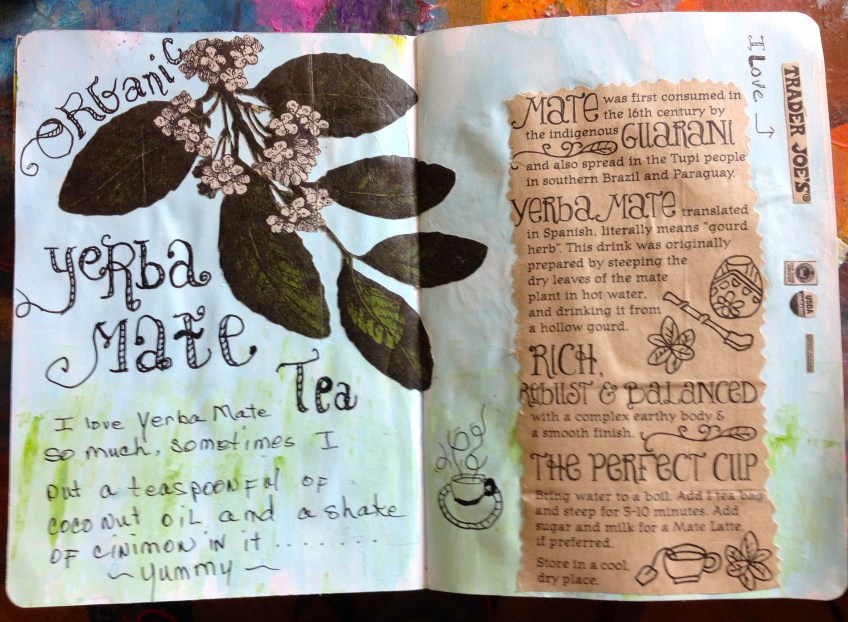 ORGanic
yerba
Mate
Tea
I love Yerba Mate
so much, sometimes I
put a teaspoonful of
coconut oil and a shake
of cinimon in it ........
~ yummy ~
I Love →
TRADER JOE'S®
MATE was first consumed in
the 16th century by
the indigenous GUARANI
and also spread in the Tupi people
in southern Brazil and Paraguay.
YERBA MATE translated
in Spanish, literally means "gourd
herb". This drink was originally
prepared by steeping the
dry leaves of the mate
plant in hot water,
and drinking it from
a hollow gourd.
RICH,
ROBUST & BALANCED
with a complex earthy body &
a smooth finish.
THE PERFECT CUP
Bring water to a boil. Add 1 tea bag
and steep for 5-10 minutes. Add
sugar and milk for a Mate Latte,
if preferred.
Store in a cool,
dry place.
USDA